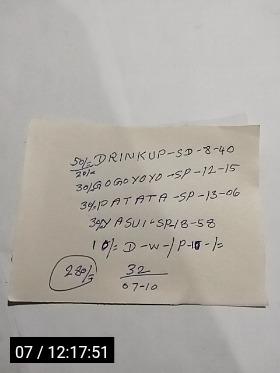 50/= DRINKUP-SD-8-40
20/=
30/= GOGOYOYO-SP-12-15
30/= PATATA-SP-13-06
30/= YASUI-SP-18-58
10/= D-W-/P-10-/=
280/= 32
07-10
07 / 12:17:51